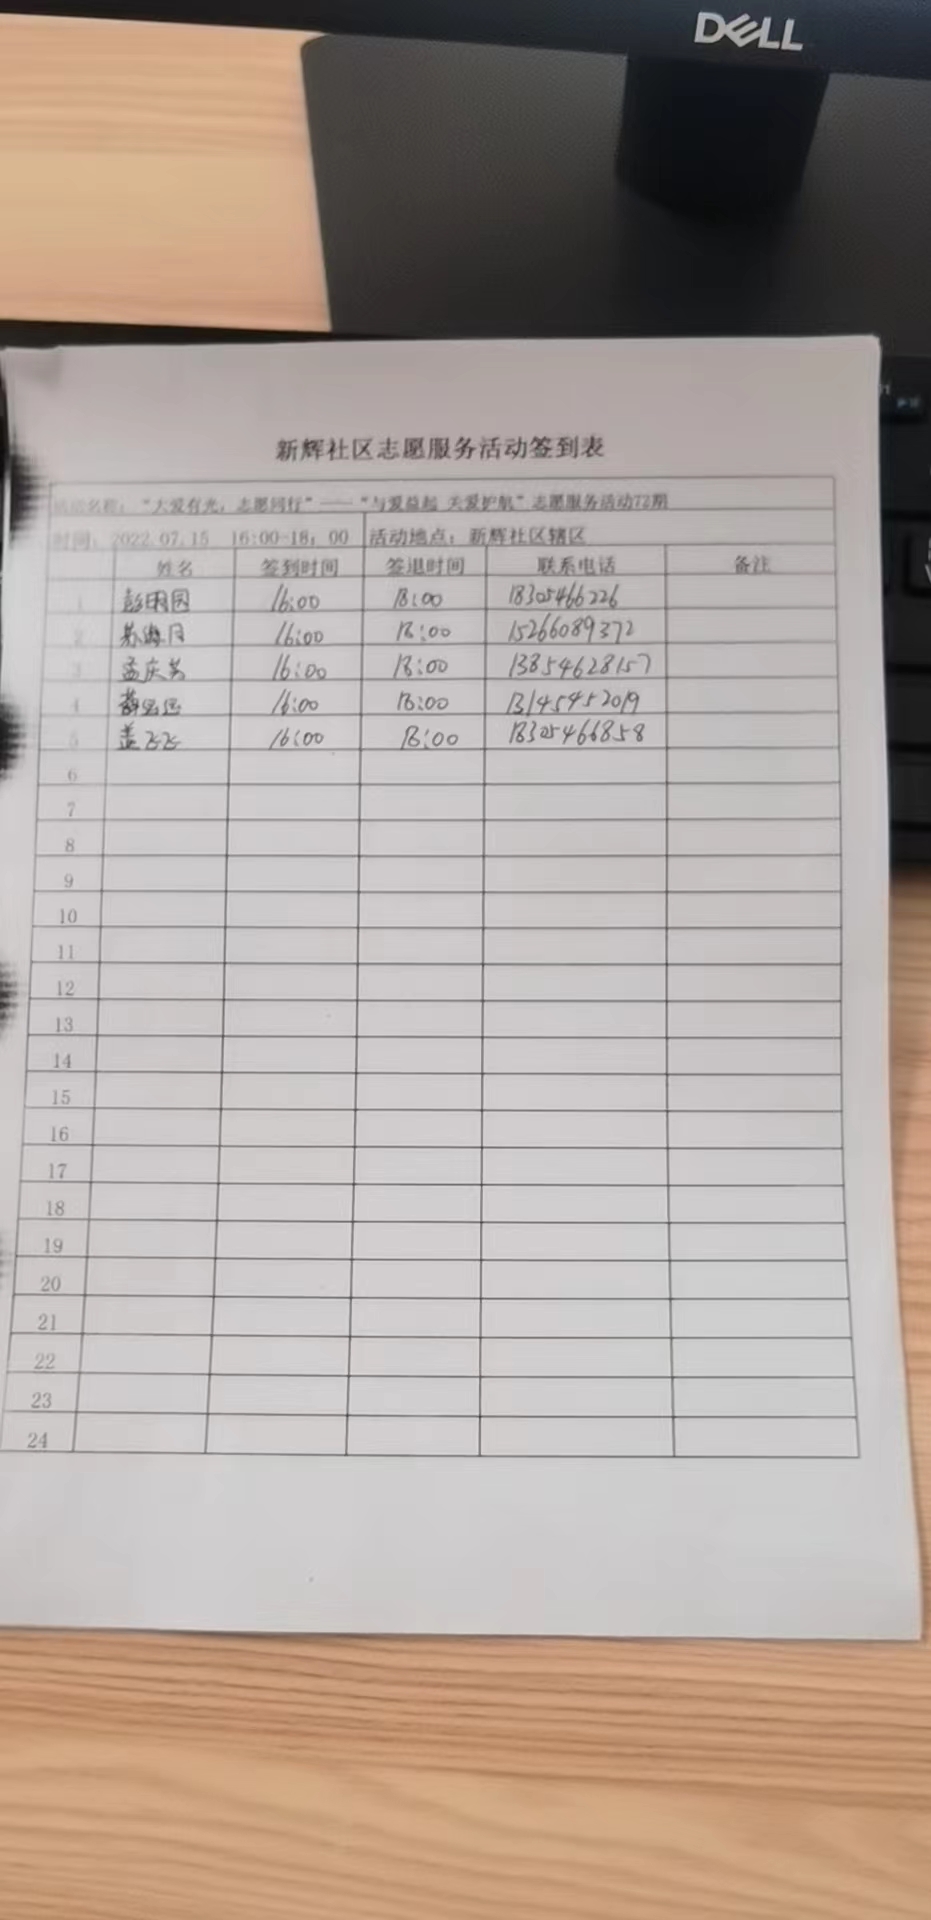 DELL
新辉社区志愿服务活动签到表
活动名称："大爱有光，志愿同行"——"与爱益起 关爱护航"志愿服务活动72期
时间：2022.07.15 16:00-18，00 活动地点：新辉社区辖区
姓名 签到时间 签退时间 联系电话 备注
1 16:00 18:00 18305466226
2 苏海月 16:00 18:00 15266089372
3 16:00 18:00 13854628157
4 16:00 18:00 13145452019
5 盖飞飞 16:00 18:00 18305466858
6
7
8
9
10
11
12
13
14
15
16
17
18
19
20
21
22
23
24